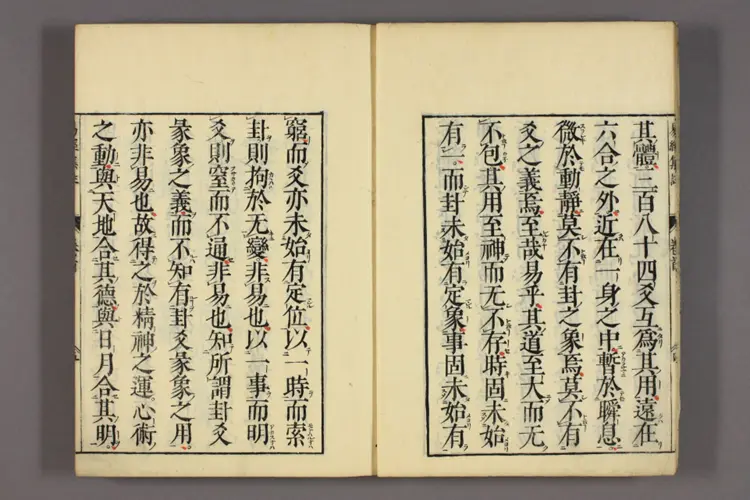 其體三百八十四爻互爲其用遠在
六合之外近在一身之中暫於瞬息
微於動靜莫不有卦之象焉莫不有
爻之義焉至哉易乎其道至大而无
不包其用至神而无不存時固未始
有一而卦未始有定象事固未始有
窮而爻亦未始有定位以一時而索
卦則拘於无變非易也以一事而明
爻則窒而不通非易也知所謂卦爻
彖象之義而不知有卦爻彖象之用
亦非易也故得之於精神之運心術
之動與天地合其德與日月合其明